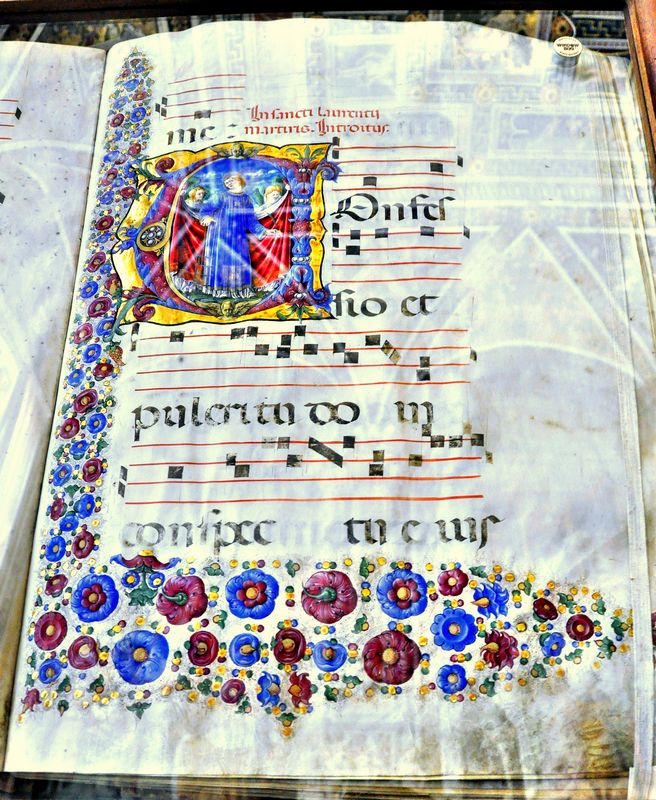 me :
In sancti laurentij
martiris. Introitus.
COnfes
sio et
pulcritu do in
conspec tu e ius